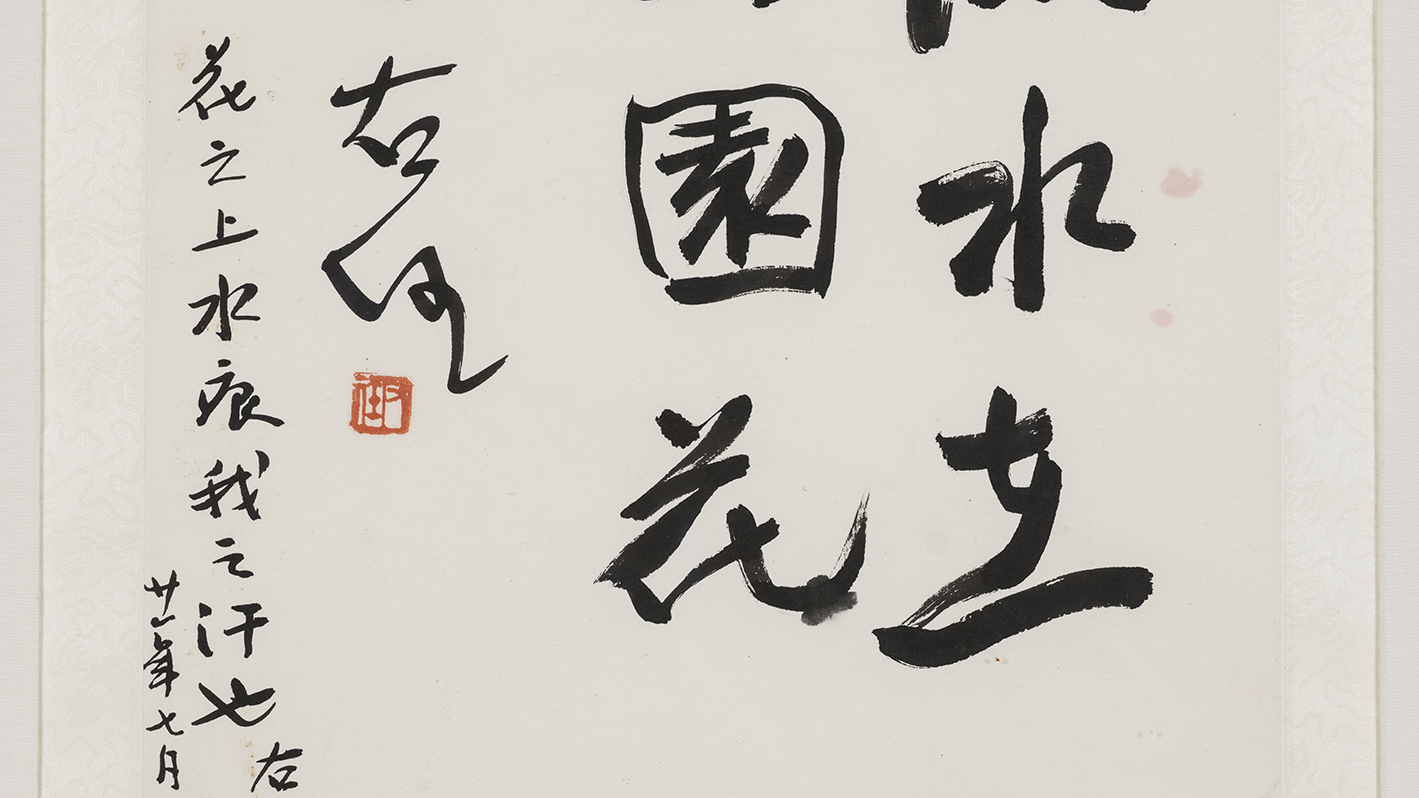 水
園花
右任
花之上水痕我之汗也 右
廿一年七月